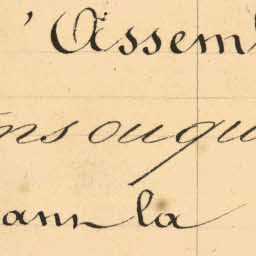 l'Assem
ns ou qu
dans la